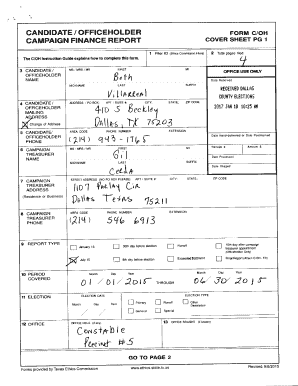 CANDIDATE / OFFICEHOLDER FORM C/OH
CAMPAIGN FINANCE REPORT COVER SHEET PG 1
The C/OH Instruction Guide explains how to complete this form.
1 Filer ID (Ethics Commission Filers)
2 Total pages filed:
4
3 CANDIDATE / OFFICEHOLDER NAME
MS / MRS / MR FIRST MI
Beth
NICKNAME LAST SUFFIX
Villarreal
OFFICE USE ONLY
Date Received
RECEIVED DALLAS
COUNTY ELECTIONS
2017 JAN 18
4 CANDIDATE / OFFICEHOLDER MAILING ADDRESS
Change of Address
ADDRESS / PO BOX; APT / SUITE #; CITY; STATE; ZIP CODE
410 S Beckley
Dallas, TX 75203
5 CANDIDATE / OFFICEHOLDER PHONE
AREA CODE PHONE NUMBER EXTENSION
(214) 943-1765
Date Hand-delivered or Date Postmarked
Receipt # Amount $
Date Processed
Date Imaged
6 CAMPAIGN TREASURER NAME
MS / MRS / MR FIRST MI
Gil
NICKNAME LAST SUFFIX
Cerda
7 CAMPAIGN TREASURER ADDRESS
(Residence or Business)
STREET ADDRESS (NO PO BOX PLEASE); APT / SUITE #; CITY; STATE; ZIP CODE
1107 Cir
Dallas Texas 75211
8 CAMPAIGN TREASURER PHONE
AREA CODE PHONE NUMBER EXTENSION
(214) 546 6913
9 REPORT TYPE
January 15
30th day before election
Runoff
15th day after campaign treasurer appointment (Officeholder Only)
July 15
8th day before election
Exceeded $500 limit
Final Report (Attach C/OH - FR)
10 PERIOD COVERED
Month Day Year
01 / 01 / 2015 THROUGH 06 / 30 / 2015
11 ELECTION
ELECTION DATE
Month Day Year
ELECTION TYPE
Primary
Runoff
Other Description
General
Special
12 OFFICE
OFFICE HELD (if any)
Constable
Precinct #5
13 OFFICE SOUGHT (if known)
GO TO PAGE 2
Forms provided by Texas Ethics Commission www.ethics.state.tx.us